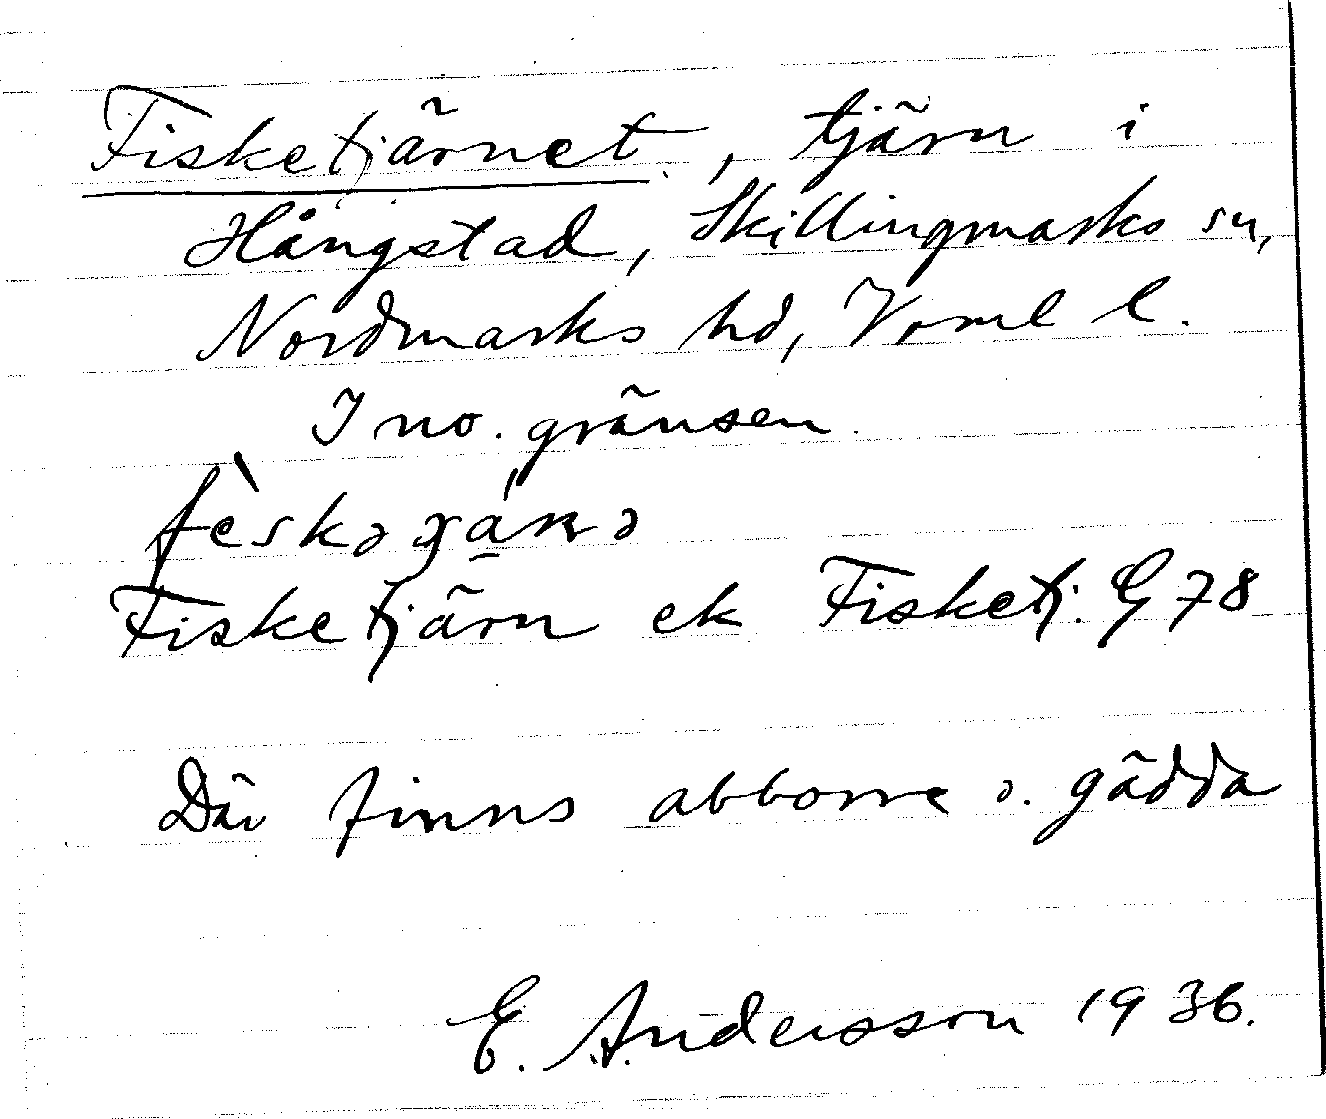 Fisketjärnet, tjärn i
Hångstad, Skillingmarks sn,
Nordmarks hd, Vrml l.
I no. gränsen.
Fisketjärn ek Fisketj. G 78
Där finns abborre o. gädda
E. Andersson 1936.